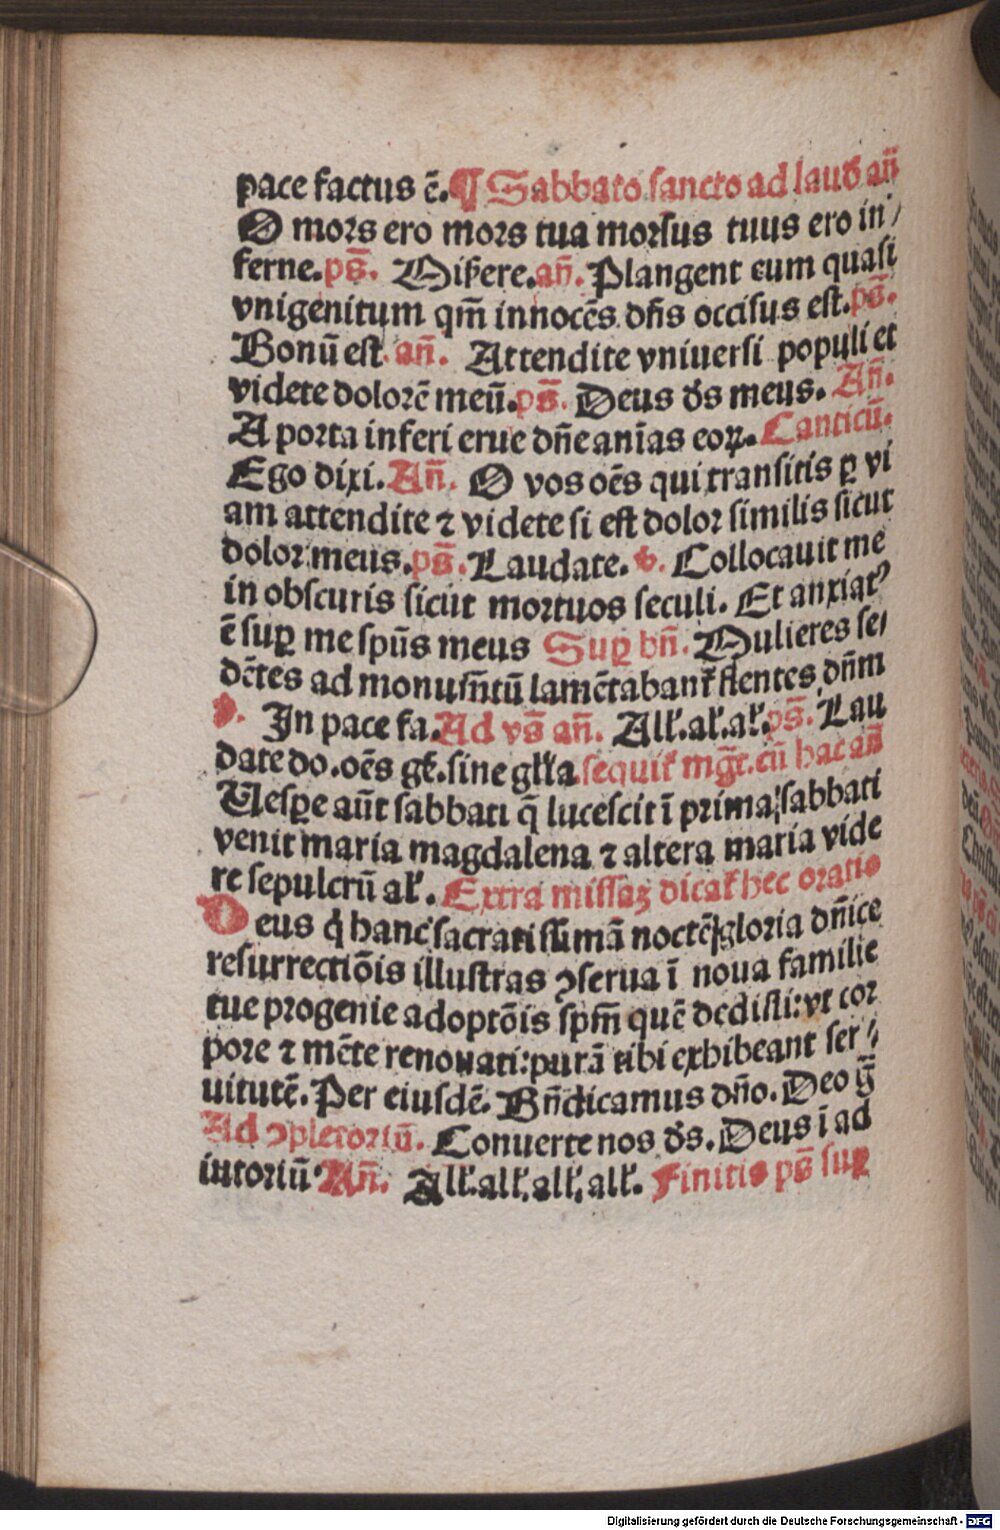 pace factus ē. ¶ Sabbato sancto ad laud̄ an̄
O mors ero mors tua morsus tuus ero in/
ferne. ps̄. Miẜere. an̄. Plangent eum quasi
vnigenitum qm̄ innocēs dn̄s occisus est. ps̄.
Bonū est. an̄. Attendite vniuersi populi et
videte dolorē meū. ps̄. Deus d̄s meus. An̄.
A porta inferi erue dn̄e anīas eoꝝ. Canticū.
Ego dixi. An̄. O vos oēs qui transitis ꝑ vi
am attendite ⁊ videte si est dolor similis sicut
dolor meus. ps̄. Laudate. v. Collocauit me
in obscuris sicut mortuos seculi. Et anxiatꝰ
ē suꝑ me spūs meus Suꝑ bn̄. Mulieres se/
dētes ad monumn̄tū lamētabant᷑ flentes dn̄m
v. In pace fa. Ad vs̄ an̄. All'. al'. al'. ps̄. Lau
date do. oēs gē. sine gl'ia sequit᷑ mgt̄. cū hac an̄
Uesꝑe aūt sabbati q̄ lucescit ī prima sabbati
venit maria magdalena ⁊ altera maria vide
re sepulcrū al'. Extra missaꝫ dicat᷑ hec oratio
Deus q̇ hanc sacratissimā noctē gloria dn̄ice
resurrectiōis illustras ꝯserua ī noua familie
tue progenie adoptōis spm̄ quē dedisti: vt cor
pore ⁊ mēte renouati: purā tibi exhibeant ser/
uitutē. Per eiusdē. Bn̄dicamus dn̄o. Deo ḡ
Ad ꝯpletoriū. Conuerte nos d̄s. Deus ī ad
iutoriū An̄. All'. all'. all'. all'. Finitis ps̄ suꝑ
Digitalisierung gefördert durch die Deutsche Forschungsgemeinschaft - DFG